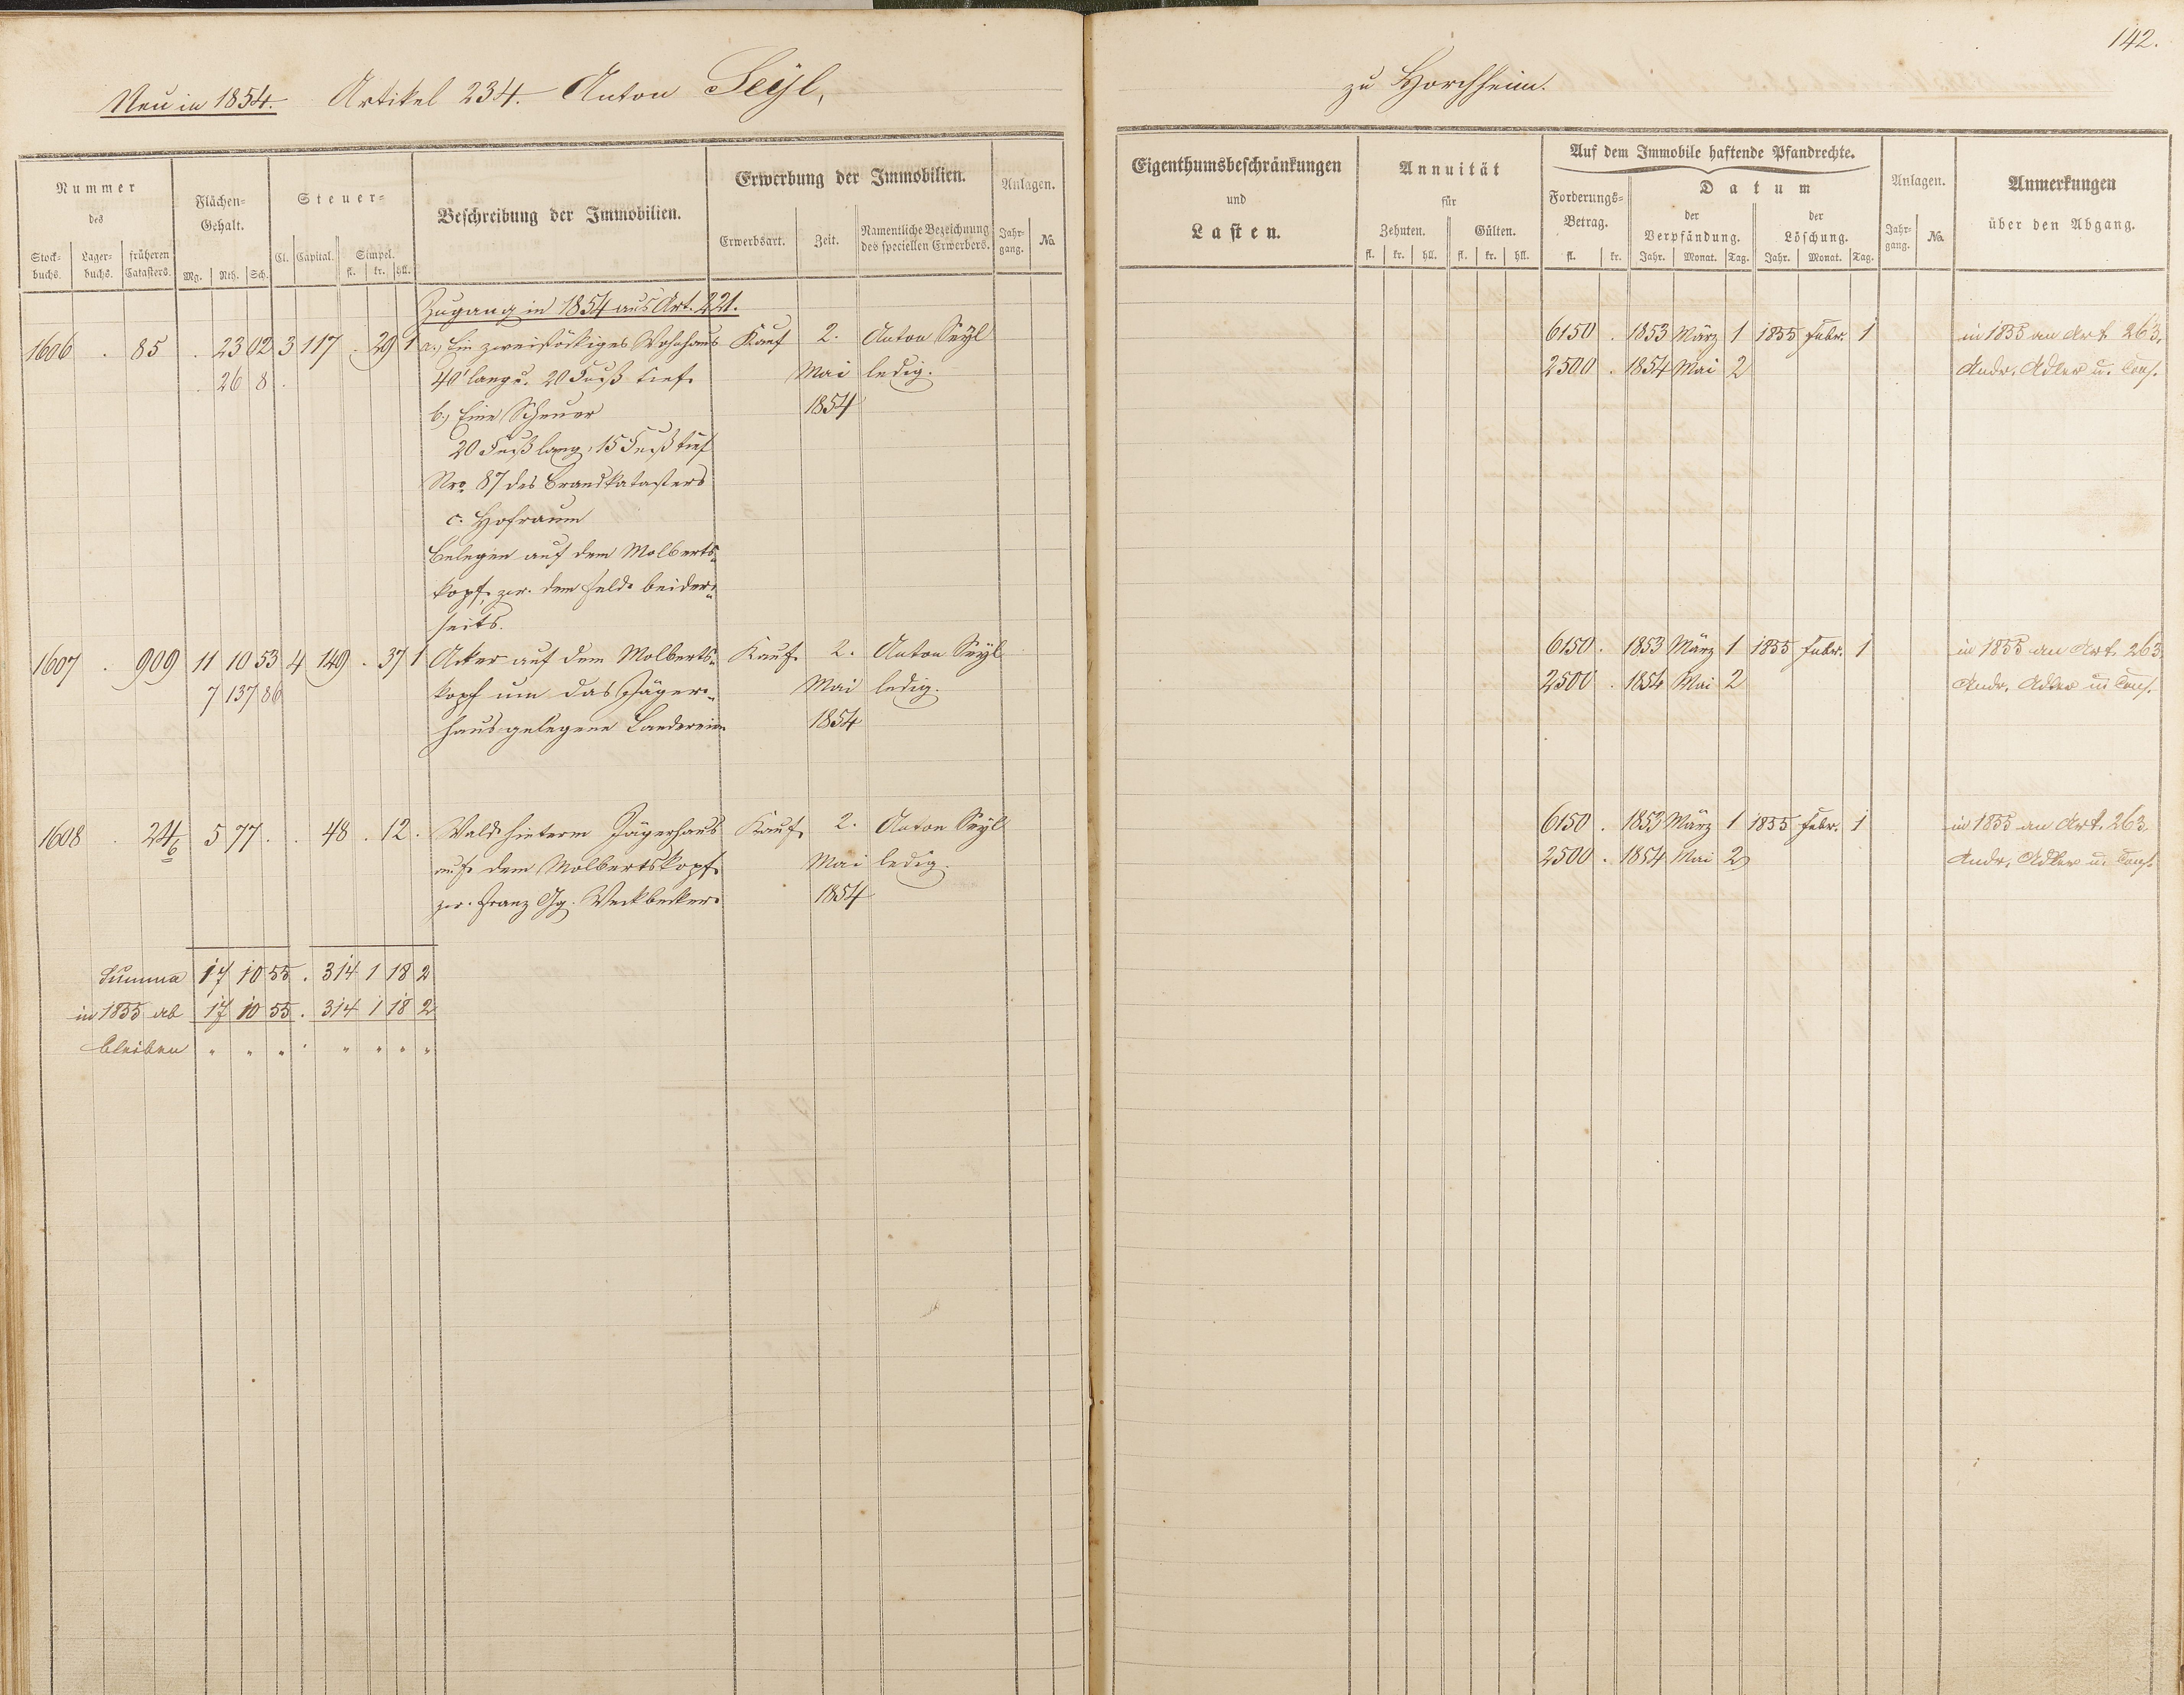 142.
Neu in 1854. Artikel 234. Anton Seyl, zu Horchheim.
Nummer des
Stockbuchs. Lagerbuchs. früheren Catasters.
Flächen-Gehalt.
Mg. Rth. Sch.
Steuer-
Cl. Capital. Simpel. fl. kr. hll.
Beschreibung der Immobilien.
Erwerbung der Immobilien.
Erwerbsart. Zeit. Namentliche Bezeichnung des speciellen Erwerbers.
Anlagen.
Jahrgang. No.
Eigenthumsbeschränkungen
und
Lasten.
Annuität
für
Zehnten. Gülten.
fl. kr. hll. fl. kr. hll.
Auf dem Immobile haftende Pfandrechte.
Forderungs-Betrag.
fl. kr.
Datum
der Verpfändung. der Löschung.
Jahr. Monat. Tag. Jahr. Monat. Tag.
Anlagen.
Jahrgang. No.
Anmerkungen
über den Abgang.
Zugang in 1854 aus Art. 221.
1606 . 85 . 23 02 3 117 . 29 1 a.) Ein zweistöckiges Wohnhaus Kauf 2. Anton Seyl 6150 . 1853 März 1 1855 Febr. 1 in 1855 an Art. 263,
. 26 8 . 40' lang u. 20 Fuß tief Mai ledig. 2500 . 1854 Mai 2 Andr. Adler u. Cons.
b.) Eine Scheuer 1854
20 Fuß lang, 15 Fuß tief
Nro. 87 des Brandkatasters
c. Hofraum
Belegen auf dem Molberts-
kopf, zw. dem Felde beider-
seits.
1607 . 909 11 10 53 4 149 . 37 1 Acker auf dem Molberts- Kauf 2. Anton Seyl 6150 . 1853 März 1 1855 Febr. 1 in 1855 an Art. 263,
7 137 86 kopf um das Jäger- Mai ledig. 2500 . 1854 Mai 2 Andr. Adler u. Cons.
haus gelegene Ländereien 1854
1608 . 24/6 5 77 . . 48 . 12 . Wald hinterm Jägerhaus Kauf 2. Anton Seyl 6150 . 1853 März 1 1855 Febr. 1 in 1855 an Art. 263.
auf dem Molbertskopf Mai ledig. 2500 . 1854 Mai 2 Andr. Adler u. Cons.
zw. Franz Gg. Weckbecker 1854
Summa 17 10 55 . 314 1 18 2
in 1855 ab 17 10 55 . 314 1 18 2
bleiben " " " . " " " "